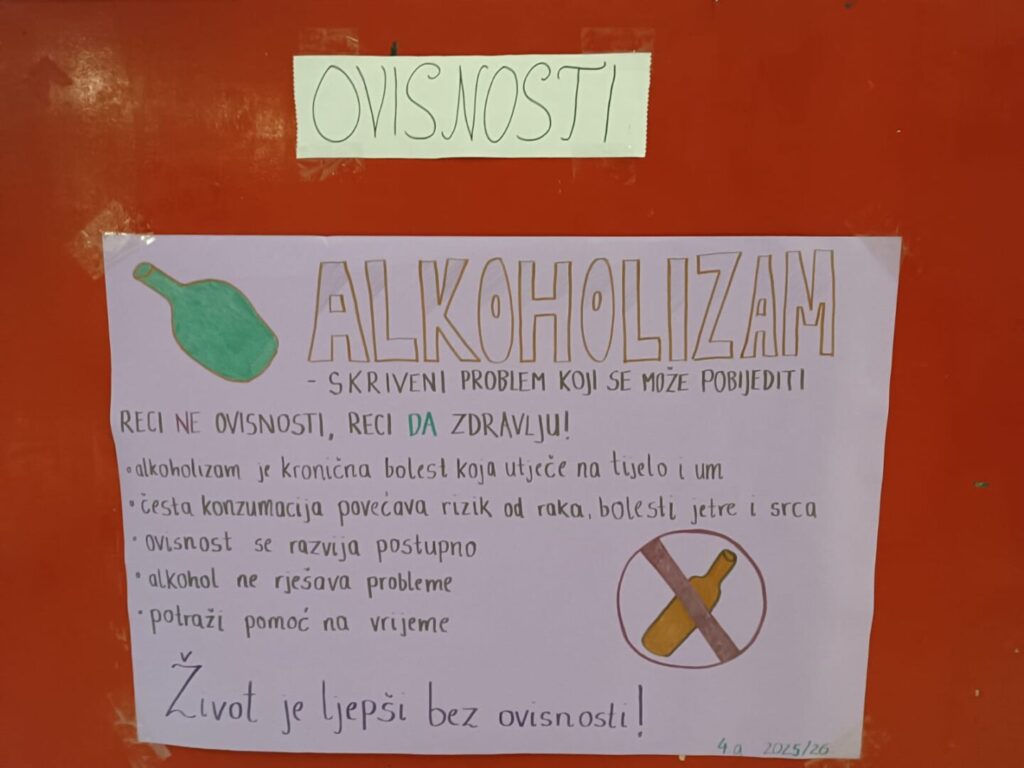 OVISNOSTI
ALKOHOLIZAM
- SKRIVENI PROBLEM KOJI SE MOŽE POBIJEDITI
RECI NE OVISNOSTI, RECI DA ZDRAVLJU!
• alkoholizam je kronična bolest koja utječe na tijelo i um
• česta konzumacija povećava rizik od raka, bolesti jetre i srca
• ovisnost se razvija postupno
• alkohol ne rješava probleme
• potraži pomoć na vrijeme
Život je ljepši bez ovisnosti!
4.a 2025/26